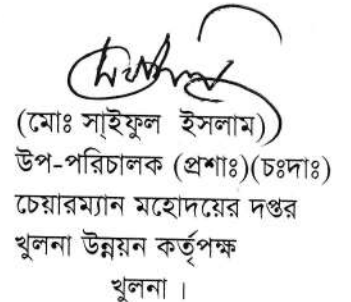 (মোঃ সাইফুল ইসলাম)
উপ-পরিচালক (প্রশাঃ)(চঃদাঃ)
চেয়ারম্যান মহোদয়ের দপ্তর
খুলনা উন্নয়ন কর্তৃপক্ষ
খুলনা ।